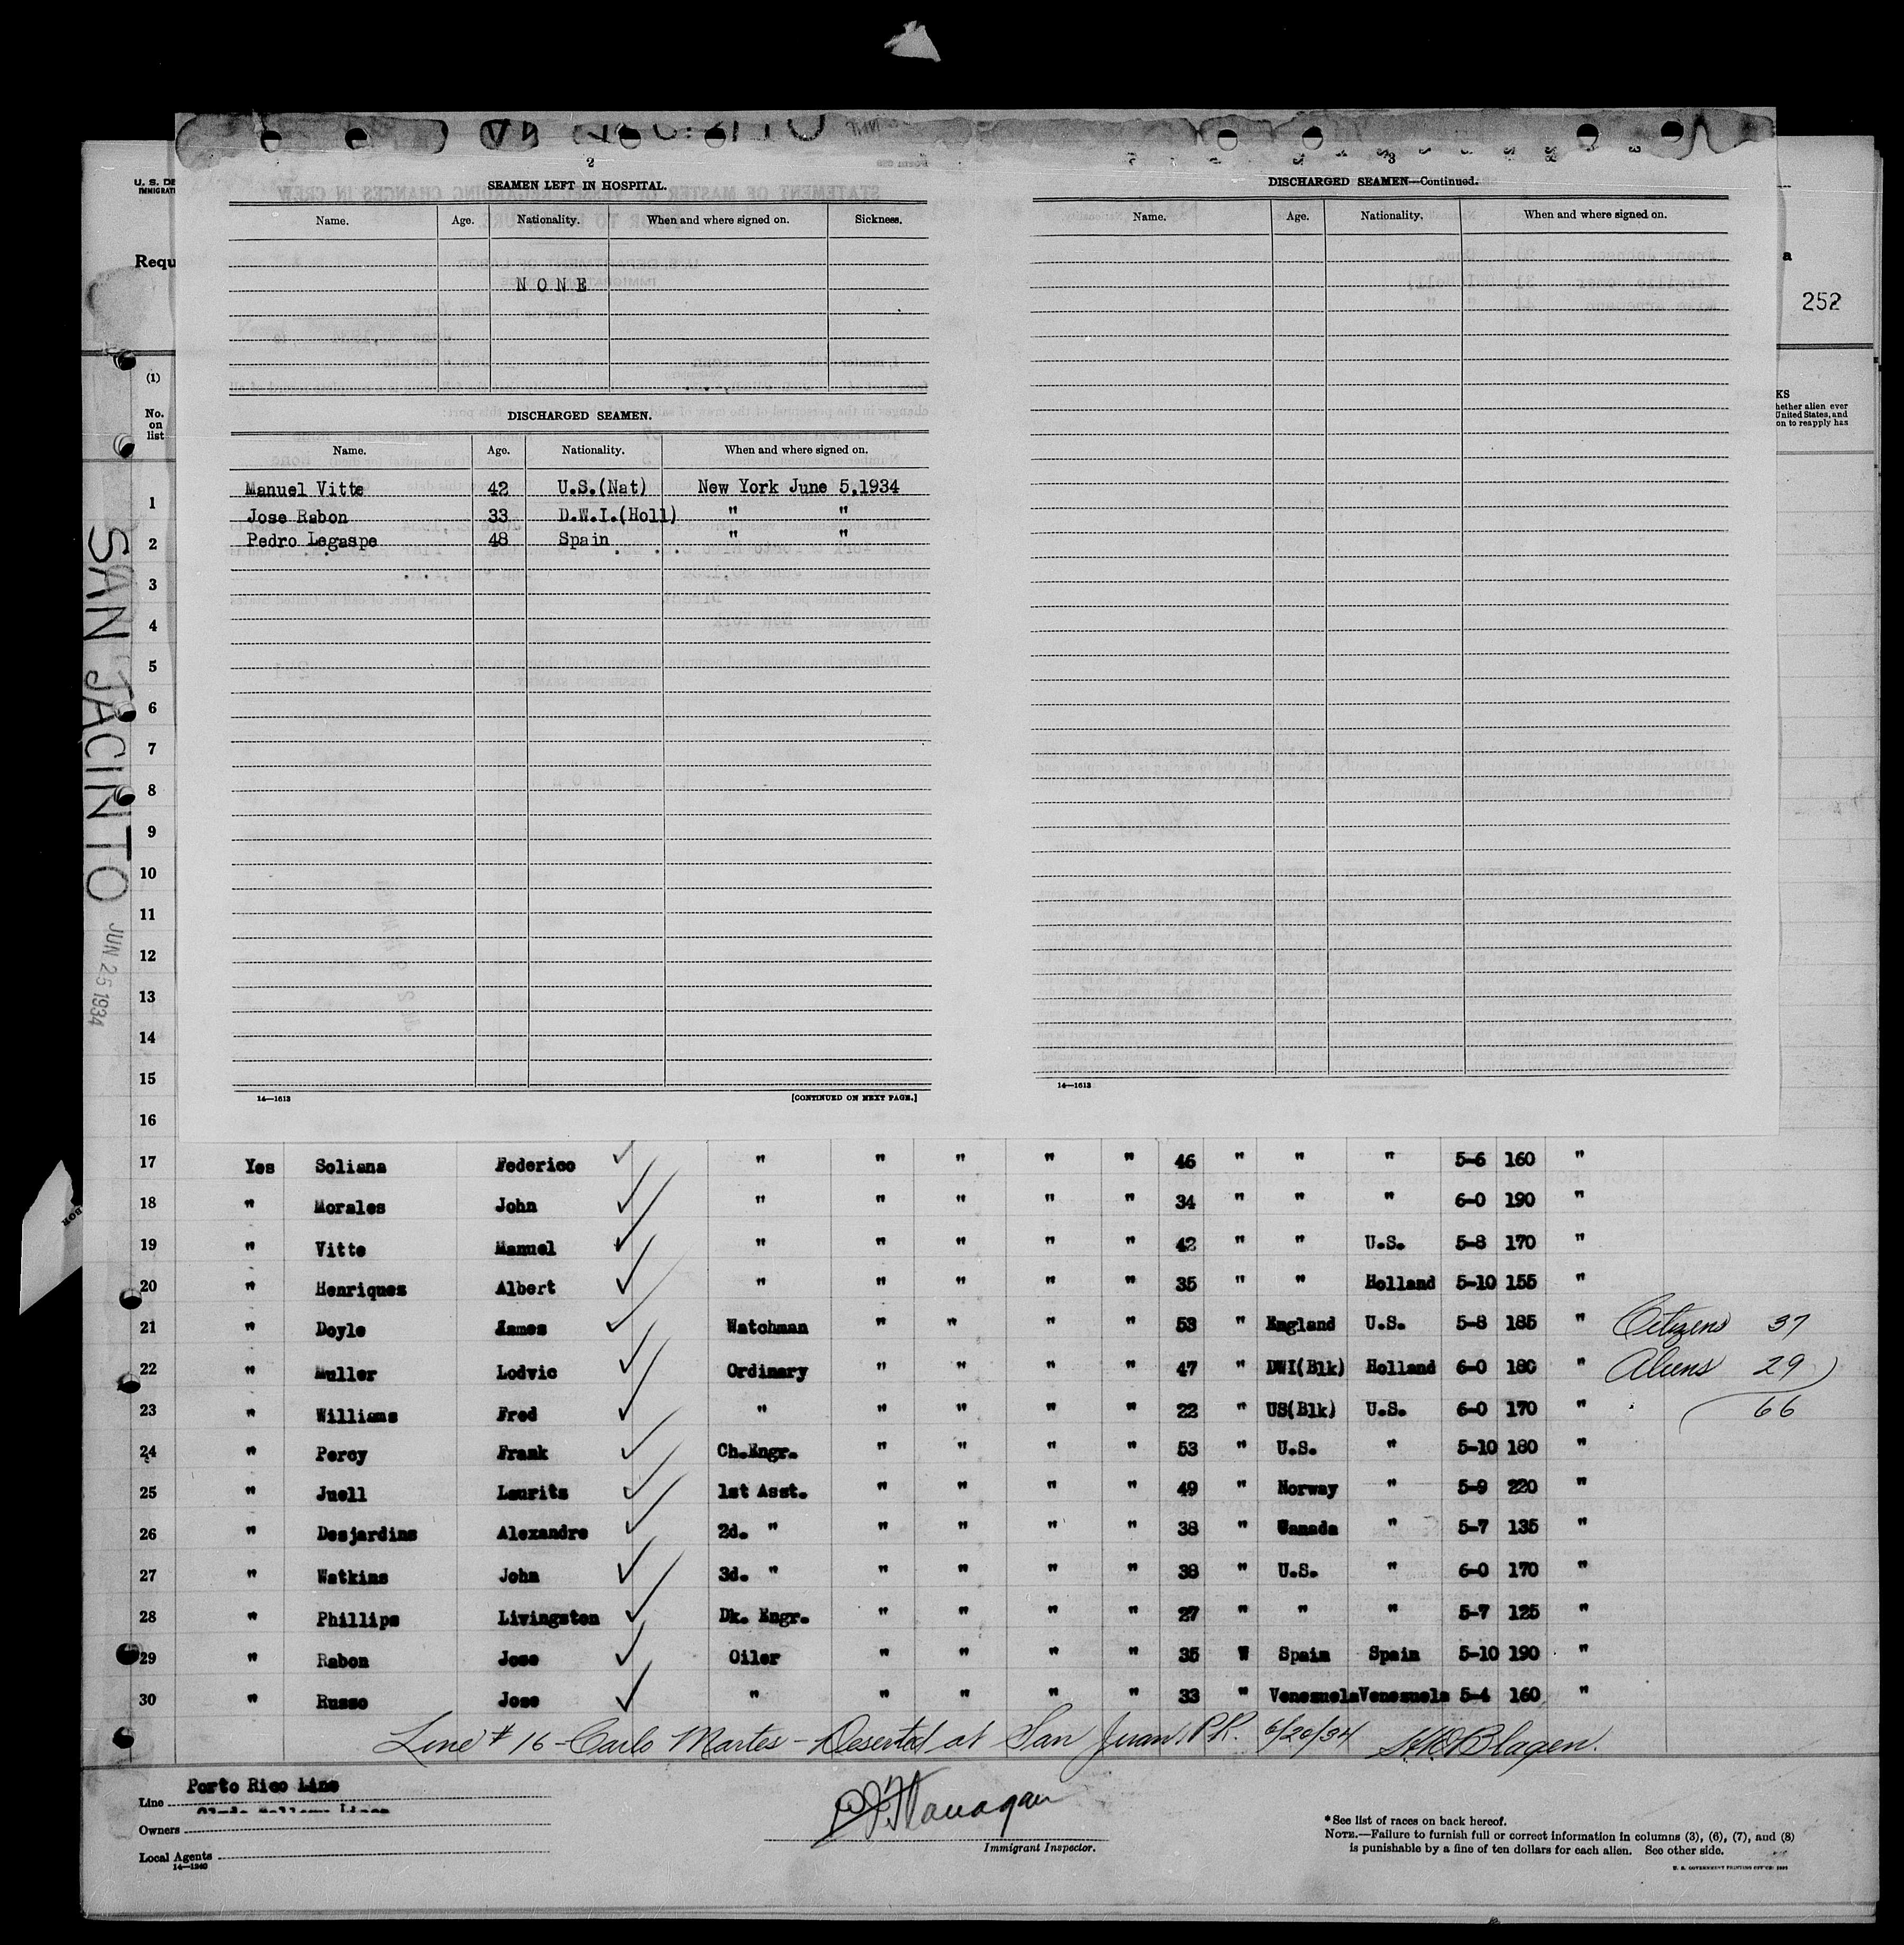 2
SEAMEN LEFT IN HOSPITAL.
Name. Age. Nationality. When and where signed on. Sickness.
NONE
DISCHARGED SEAMEN.
Name. Age. Nationality. When and where signed on.
Manuel Vitte 42 U.S.(Nat) New York June 5,1934
Jose Rabon 33 D.W.I.(Holl) " "
Pedro Legaspe 48 Spain " "
14—1613 [CONTINUED ON NEXT PAGE.]
3
DISCHARGED SEAMEN—Continued.
Name. Age. Nationality. When and where signed on.
14—1613
U. S. DE
IMMIGRAT
Requ
a
252
(1)
No.
on
list
KS
hether alien ever
United States, and
on to reapply has
SAN JACINTO
JUN 25 1934
1
2
3
4
5
6
7
8
9
10
11
12
13
14
15
16
17 Yes Soliana Federico " " " " " 46 " " " 5-6 160 "
18 " Morales John " " " " " 34 " " " 6-0 190 "
19 " Vitte Manuel " " " " " 42 " " U.S. 5-8 170 "
20 " Henriques Albert " " " " " 35 " " Holland 5-10 155 "
21 " Doyle James Watchman " " " " 53 " England U.S. 5-8 185 " Citizens 37
22 " Muller Lodvic Ordinary " " " " 47 " DWI(Blk) Holland 6-0 180 " Aliens 29
23 " Williams Fred " " " " " 22 " US(Blk) U.S. 6-0 170 " 66
24 " Percy Frank Ch.Engr. " " " " 53 " U.S. " 5-10 180 "
25 " Juell Laurits 1st Asst. " " " " 49 " Norway " 5-9 220 "
26 " Desjardins Alexandre 2d. " " " " " 38 " Canada " 5-7 135 "
27 " Watkins John 3d. " " " " " 38 " U.S. " 6-0 170 "
28 " Phillips Livingston Dk. Engr. " " " " 27 " " " 5-7 125 "
29 " Rabon Jose Oiler " " " " 35 W Spain Spain 5-10 190 "
30 " Russo Jose " " " " " 33 " Venezuela Venezuela 5-4 160 "
Line # 16 - Carlo Martes - Deserted at San Juan, P.R. 6/20/34 Blagen.
Line Porto Rico Line
Owners
Local Agents
14—1240
Flanagan
Immigrant Inspector.
*See list of races on back hereof.
NOTE.—Failure to furnish full or correct information in columns (3), (6), (7), and (8)
is punishable by a fine of ten dollars for each alien. See other side.
U. S. GOVERNMENT PRINTING OFFICE